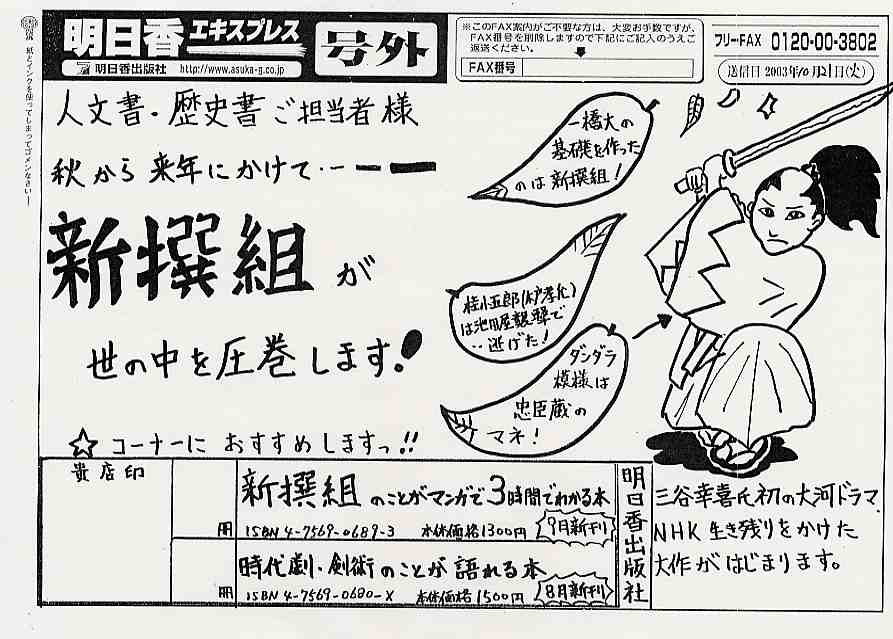 明日香エキスプレス
明日香出版社 http://www.asuka-g.co.jp
号外
※このFAX案内がご不要な方は、大変お手数ですが、
FAX番号を削除しますので下記にご記入のうえご
返送ください。
FAX番号
フリーFAX 0120-00-3802
送信日 2003年10月21日(火)
紙とインクを使ってしまってゴメンなさい
人文書・歴史書ご担当者様
秋から来年にかけて・ー
新撰組が
世の中を圧巻します!
☆コーナーにおすすめしますっ!!
一橋大の
基礎を作った
のは新撰組!
桂小五郎(木戸孝允)
は池田屋襲撃で
・・逃げた!
ダンダラ
模様は
忠臣蔵の
マネ!
貴店印
新撰組のことがマンガで3時間でわかる本
冊 ISBN 4-7569-0689-3 本体価格1300円 9月新刊
時代劇・剣術のことが語れる本
冊 ISBN 4-7569-0680-X 本体価格1500円 8月新刊
明日香出版社
三谷幸喜氏初の大河ドラマ
NHK生き残りをかけた
大作がはじまります。